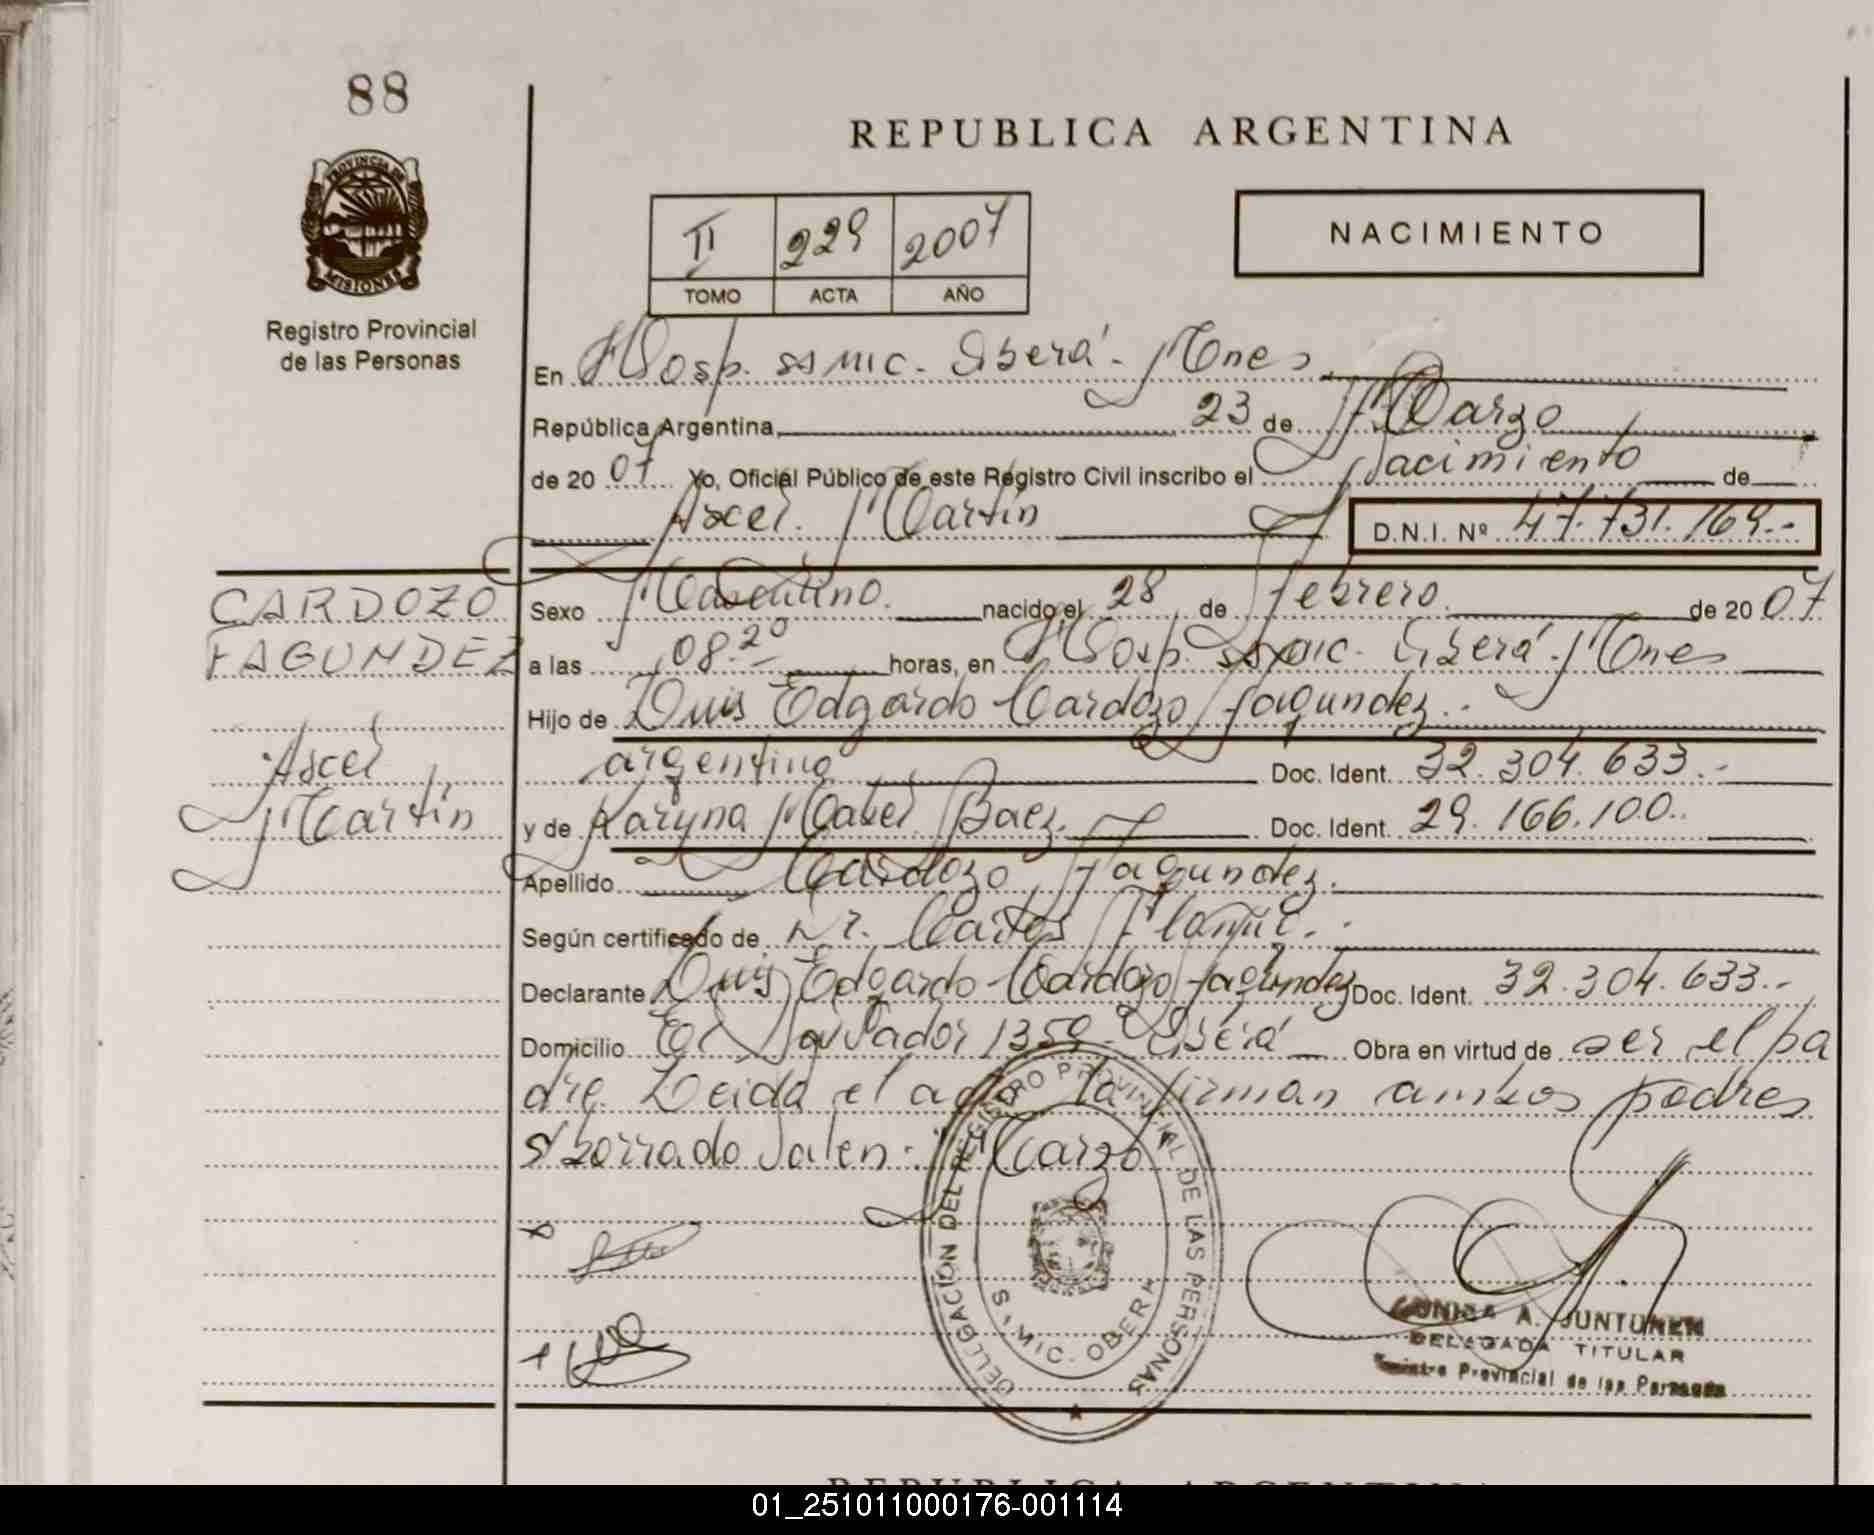 88
REPUBLICA ARGENTINA
PROVINCIA DE
MISIONES
Registro Provincial
de las Personas
II 229 2007
TOMO ACTA AÑO
NACIMIENTO
En Hosp. SAMIC. Oberá - Mnes
República Argentina, 23 de Marzo
de 20 07 Yo, Oficial Público de este Registro Civil inscribo el Nacimiento de
Axcel Martín D.N.I. Nº 47.731.169.-
CARDOZO
FAGUNDEZ
Axcel
Martín
Sexo Masculino. nacido el 28 de febrero. de 20 07
a las 08.20 horas, en Hosp. SAMIC. Oberá - Mnes
Hijo de Luis Edgardo Cardozo Fagundez.-
argentino Doc. Ident. 32.304.633.-
y de Karyna Mabel Baez. Doc. Ident. 29.166.100.
Apellido Cardozo Fagundez.
Según certificado de Dr. Carlos
Declarante Luis Edgardo Cardozo Fagundez Doc. Ident. 32.304.633.-
Domicilio El Salvador 1359 - Oberá Obra en virtud de ser el pa
dre. Leida el acta la firman ambos padres
S/borrado Valen: Marzo
DELEGACION DEL REGISTRO PROVINCIAL DE LAS PERSONAS
SAMIC. OBERA
A. JUNTUNEN
DELEGADA TITULAR
Registro Provincial de las Personas
REPUBLICA ARGENTINA
01_251011000176-001114